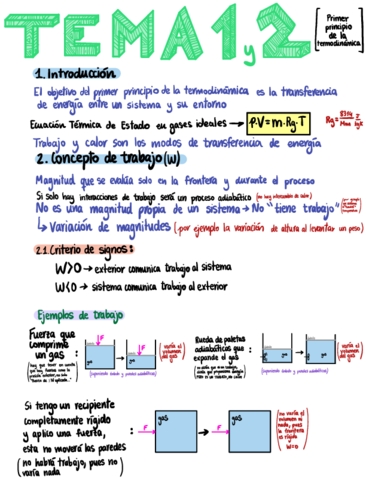 TEMA 1 y 2
Primer
principio
de la
termodinámica
1. Introducción
El objetivo del primer principio de la termodinámica es la transferencia
de energía entre un sistema y su entorno
Ecuación Térmica de Estado en gases ideales → P·V=m·Rg·T
Trabajo y calor son los modos de transferencia de energía
2. Concepto de trabajo (W)
Magnitud que se evalúa solo en la frontera y durante el proceso
Si solo hay interacciones de trabajo será un proceso adiabático (no hay intercambio de calor)
No es una magnitud propia de un sistema → No "tiene trabajo"
↳ Variación de magnitudes (por ejemplo la variación de altura al levantar un peso)
2.1. Criterio de signos:
W>0 → exterior comunica trabajo al sistema
W<0 → sistema comunica trabajo al exterior
Ejemplos de trabajo
Fuerza que
comprime
un gas :
F
F
(varía el
volumen
del gas)
Rueda de paletas
adiabáticas que
expande el gas :
(varía el
volumen
del gas)
Si tengo un recipiente
completamente rígido
y aplico una fuerza,
esta no moverá las paredes
(no habrá trabajo, pues no
varía nada) :
F
gas
→
F
gas
(no varía el
volumen ni
nada, pues
la frontera
es rígida
W=0)